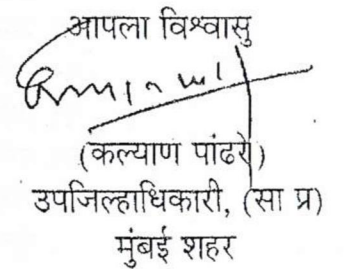 आपला विश्वासु
(कल्याण पांढरे)
उपजिल्हाधिकारी, (सा प्र)
मुंबई शहर